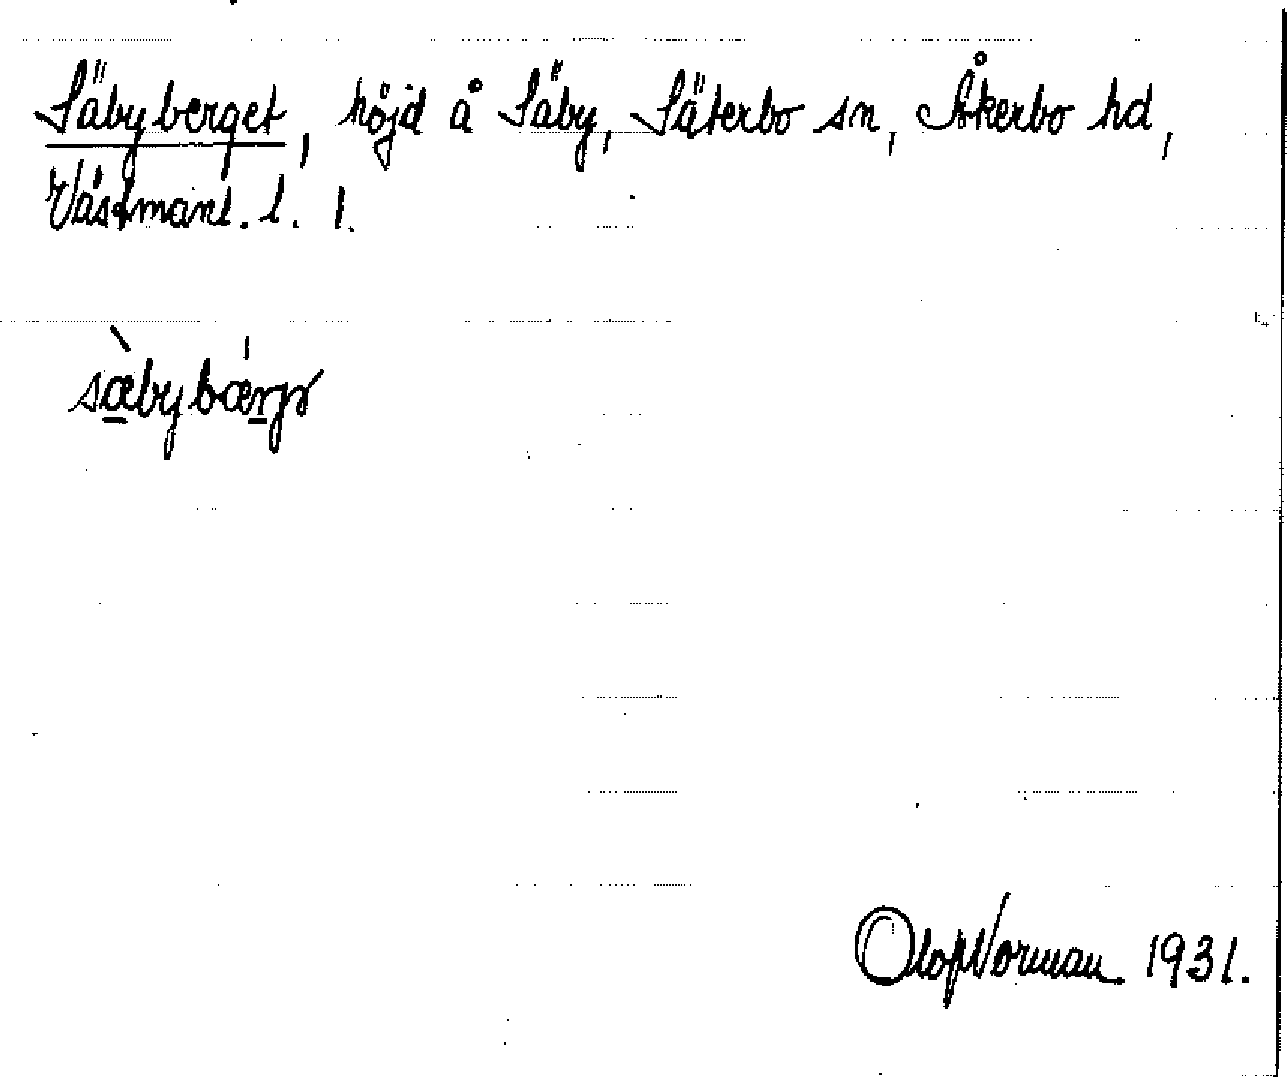 Säbyberget, höjd å Säby, Säterbo sn, Åkerbo hd,
Västmanl. l. 1.
sæ̀bybǽrjə
Olof Norman 1931.